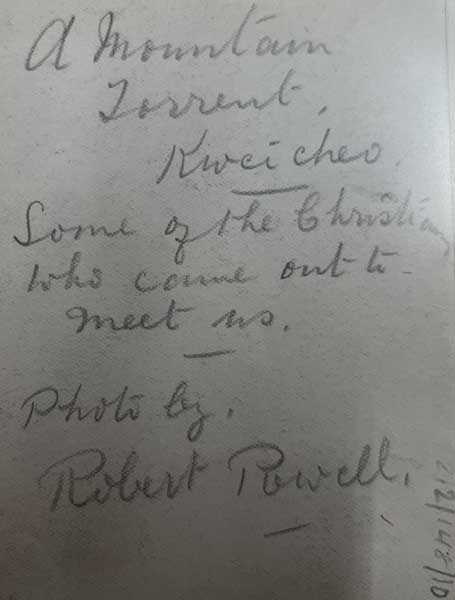 A Mountain
Torrent,
Kweicheo.
Some of the Christians
who came out to
meet us.
Photo by.
Robert Powell.